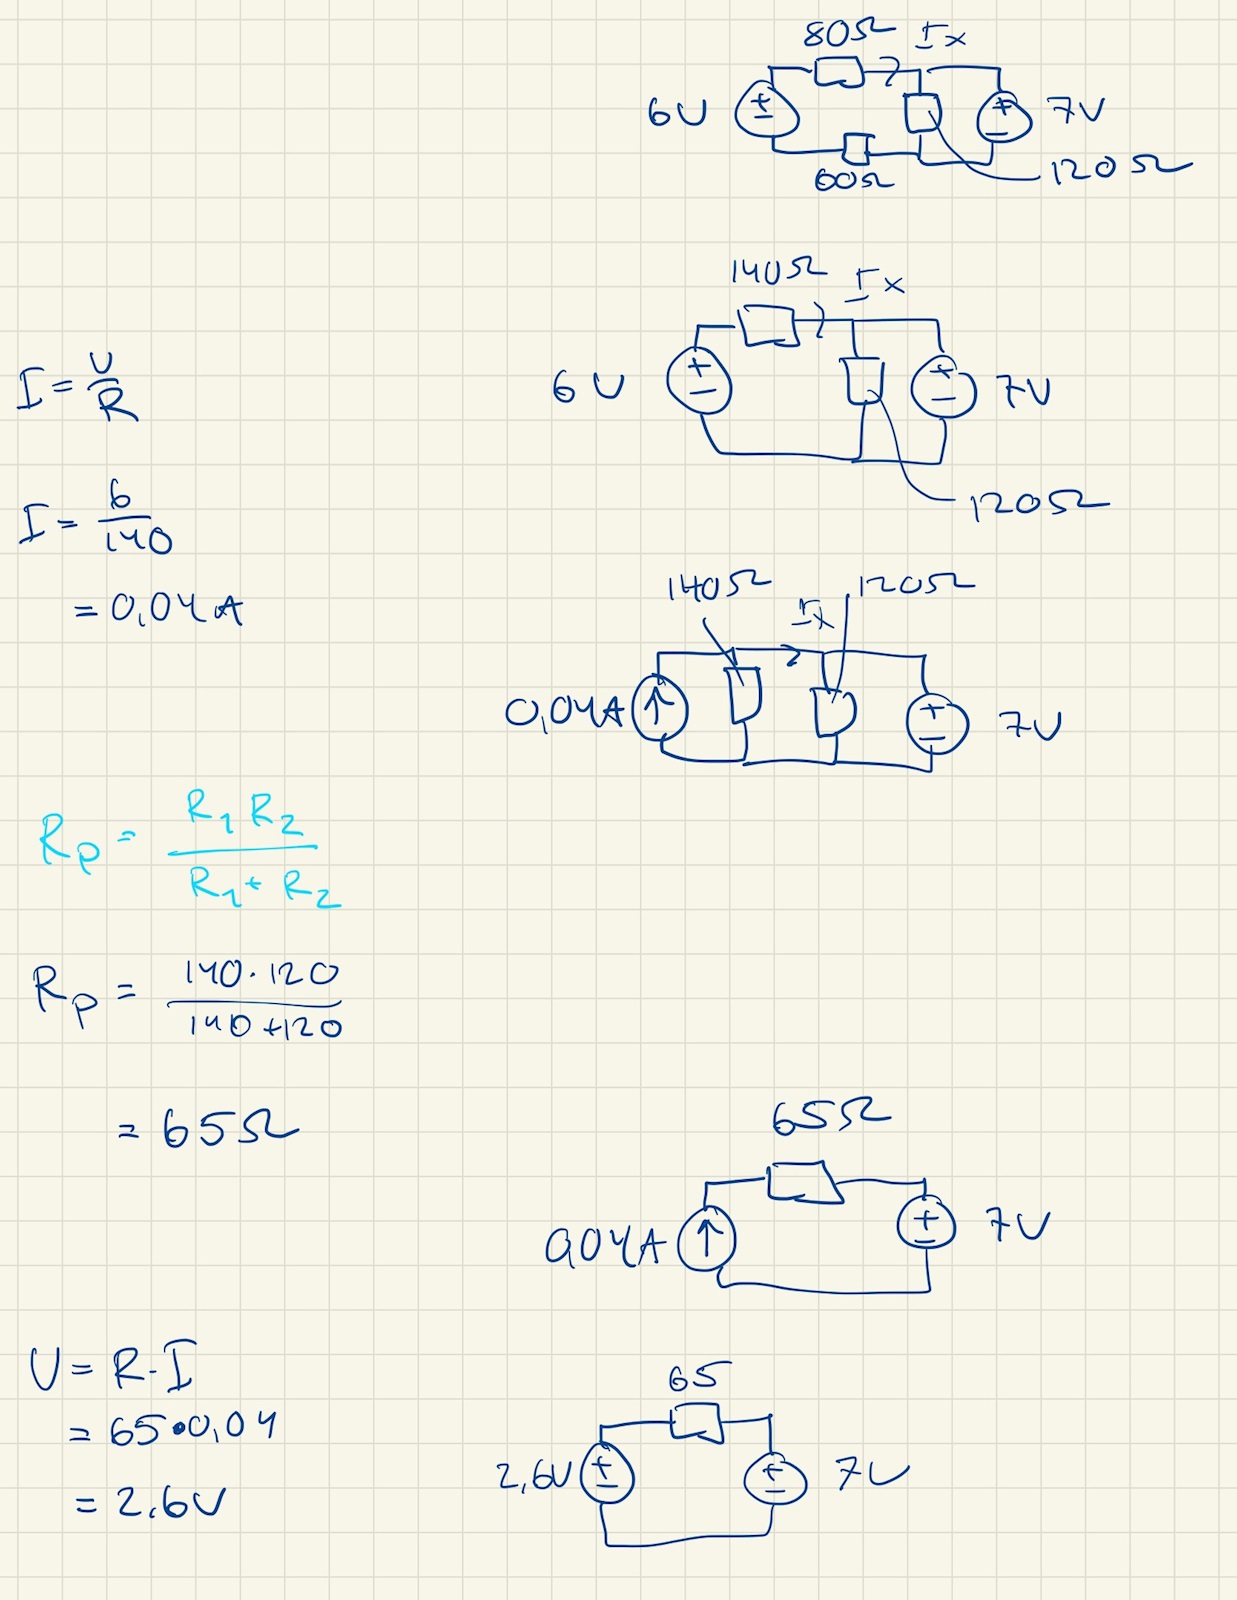 80Ω Ix
6U
7V
60Ω
120Ω
140Ω Ix
6U
7V
120Ω
I = U/R
I = 6/140
= 0,04A
140Ω 120Ω
Ix
0,04A
7V
Rp = R1 R2 / R1 + R2
Rp = 140 · 120 / 140 + 120
= 65Ω
65Ω
0,04A
7V
U = R · I
= 65 · 0,04
= 2,6V
65
2,6V
7V